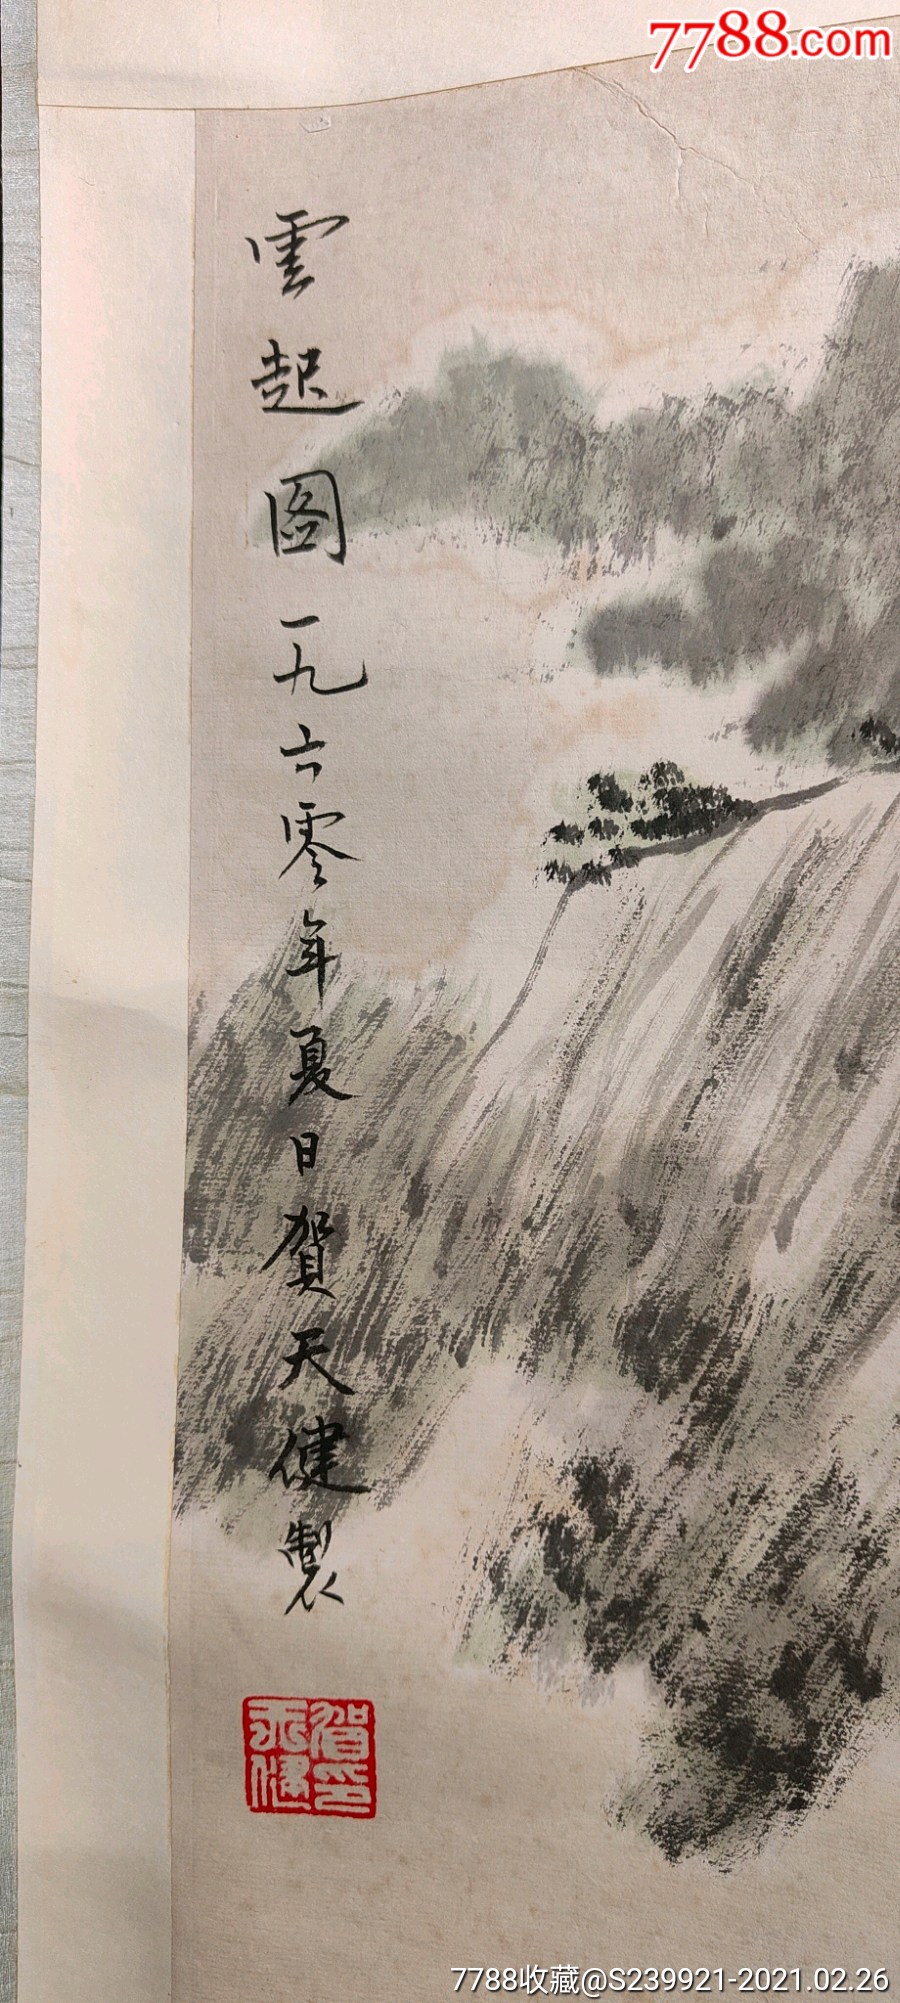 7788.com
雲起圖一九六零年夏日賀天健製
賀印
天健
7788收藏@S239921-2021.02.26